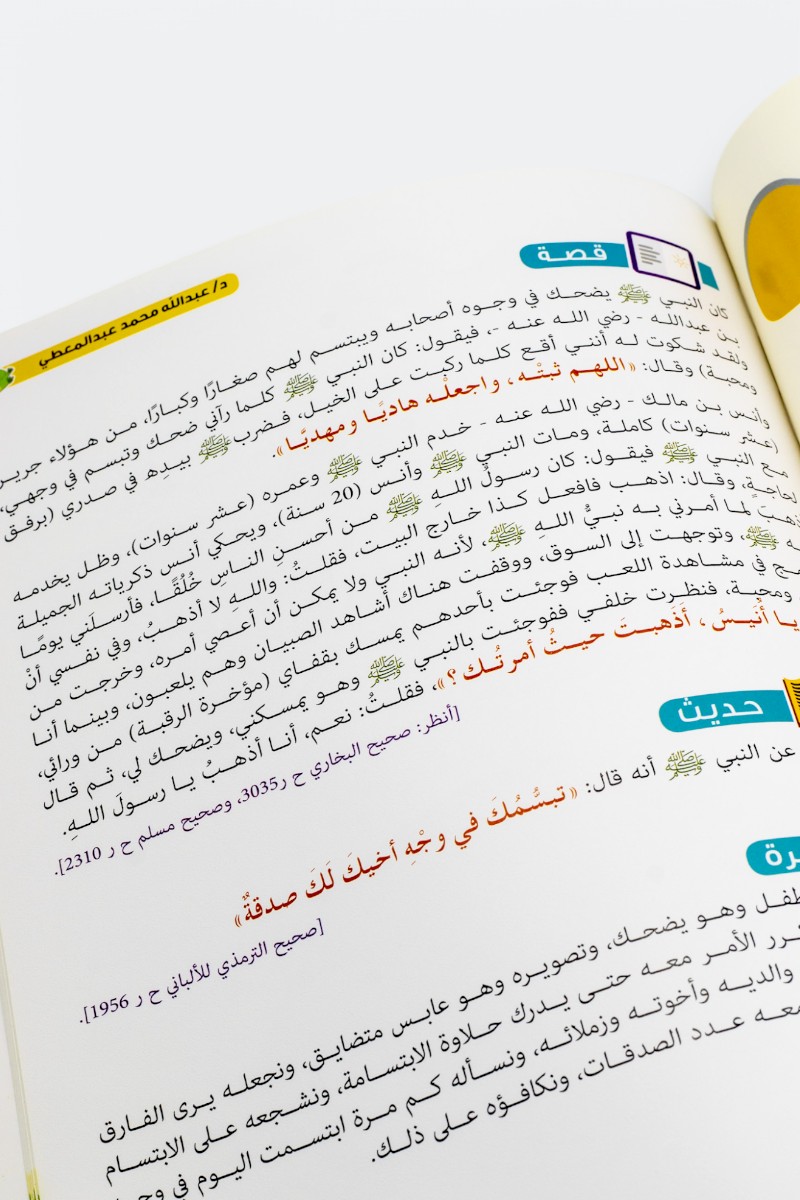 د/ عبدالله محمد عبدالمعطي
قصة
كان النبي ﷺ يضحك في وجوه أصحابه ويبتسم لهم صغارًا وكبارًا، من هؤلاء جرير
بن عبدالله - رضي الله عنه -، فيقول: كان النبي ﷺ كلما رآني ضحك وتبسم في وجهي،
ولقد شكوت له أنني أقع كلما ركبت على الخيل، فضرب ﷺ بيدِه في صدري (برفق
ومحبة) وقال: «اللهم ثبتْه، واجعلْه هاديًا ومهديًّا».
وأنس بن مالك - رضي الله عنه - خدم النبي ﷺ وعمره (عشر سنوات)، وظل يخدمه
(عشر سنوات) كاملة، ومات النبي ﷺ وأنس (20 سنة)، ويحكي أنس ذكرياته الجميلة
مع النبي ﷺ فيقول: كان رسولُ اللهِ ﷺ من أحسنِ الناسِ خُلُقًا، فأرسلَني يومًا
لحاجةٍ، وقال: اذهب فافعل كذا خارج البيت، فقلتُ: واللهِ لا أذهبُ، وفي نفسي أنْ
لما أمرني به نبيُّ اللهِ ﷺ، لأنه النبي ولا يمكن أن أعصي أمره، وخرجت من
وتوجهت إلى السوق، ووقفت هناك أشاهد الصبيان وهم يلعبون، وبينما أنا
في مشاهدة اللعب فوجئت بأحدهم يمسك بقفاي (مؤخرة الرقبة) من ورائي،
ومحبة، فنظرت خلفي ففوجئت بالنبي ﷺ وهو يمسكني، ويضحك لي، ثم قال
يا أُنَيسُ، أذَهبتَ حيثُ أمرتُك؟»، فقلتُ: نعم، أنا أذهبُ يا رسولَ اللهِ.
[أنظر: صحيح البخاري ح ر3035، وصحيح مسلم ح ر 2310].
حديث
عن النبي ﷺ أنه قال: «تبسُّمُكَ في وجْهِ أخيكَ لَكَ صدقةٌ»
[صحيح الترمذي للألباني ح ر 1956].
وهو يضحك، وتصويره وهو عابس متضايق، ونجعله يرى الفارق
الأمر معه حتى يدرك حلاوة الابتسامة، ونشجعه على الابتسام
والديه وأخوته وزملائه، ونسأله كم مرة ابتسمت اليوم في
عدد الصدقات، ونكافؤه على ذلك.